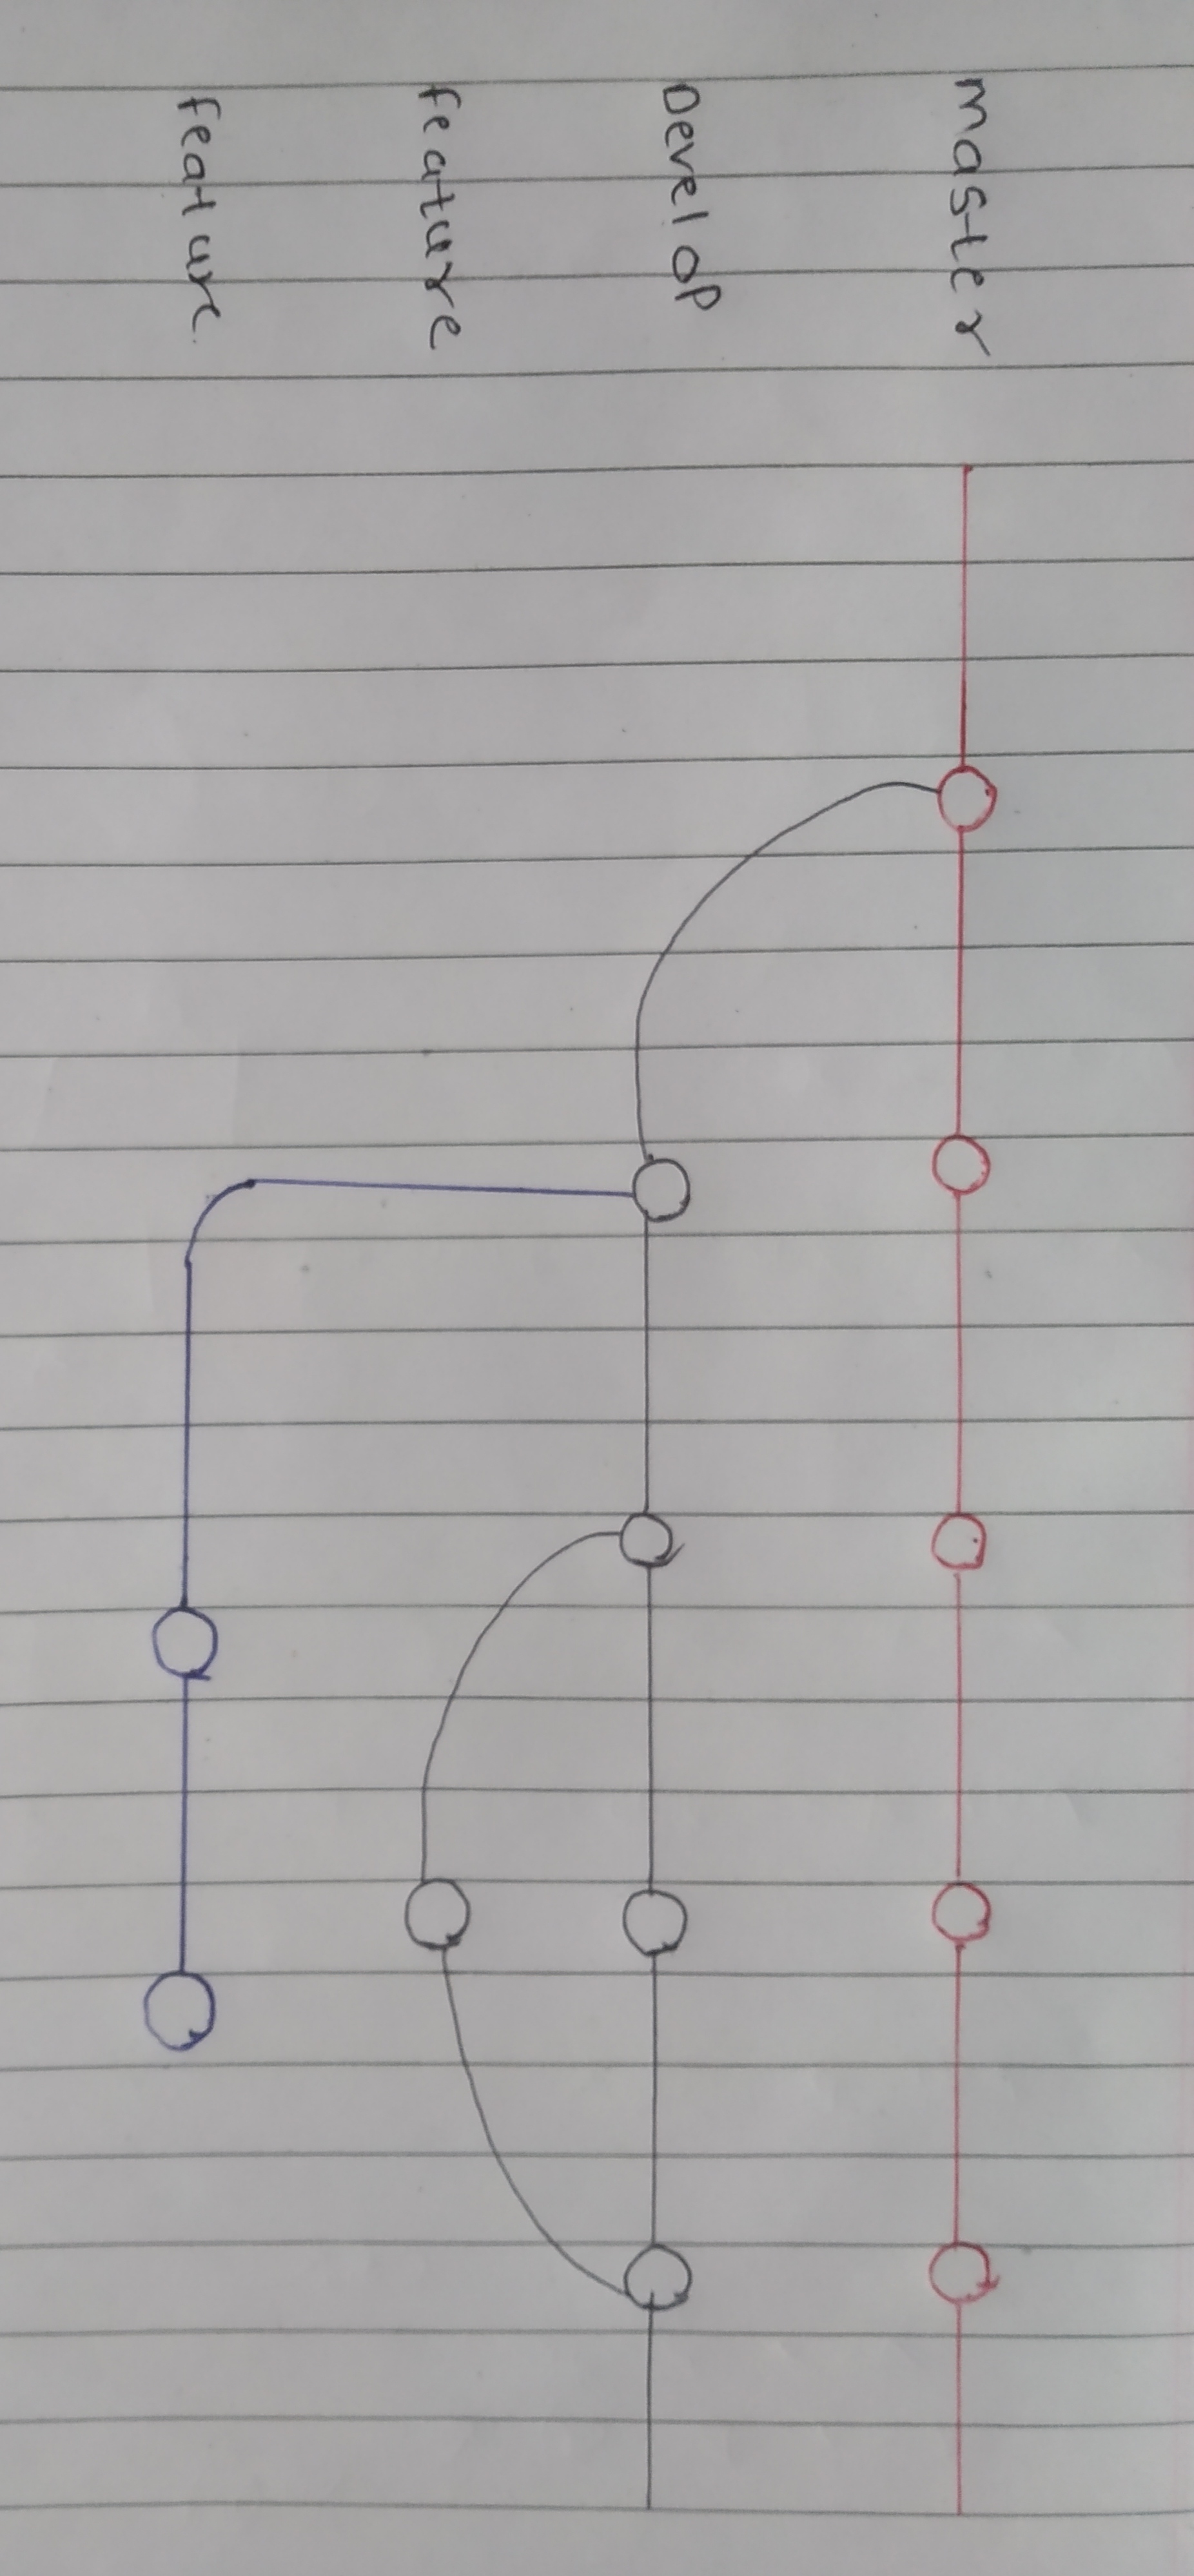 master
Develop
feature
feature